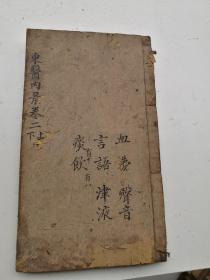 血夢聲音
言語津液
痰飲
東醫內景卷二上下